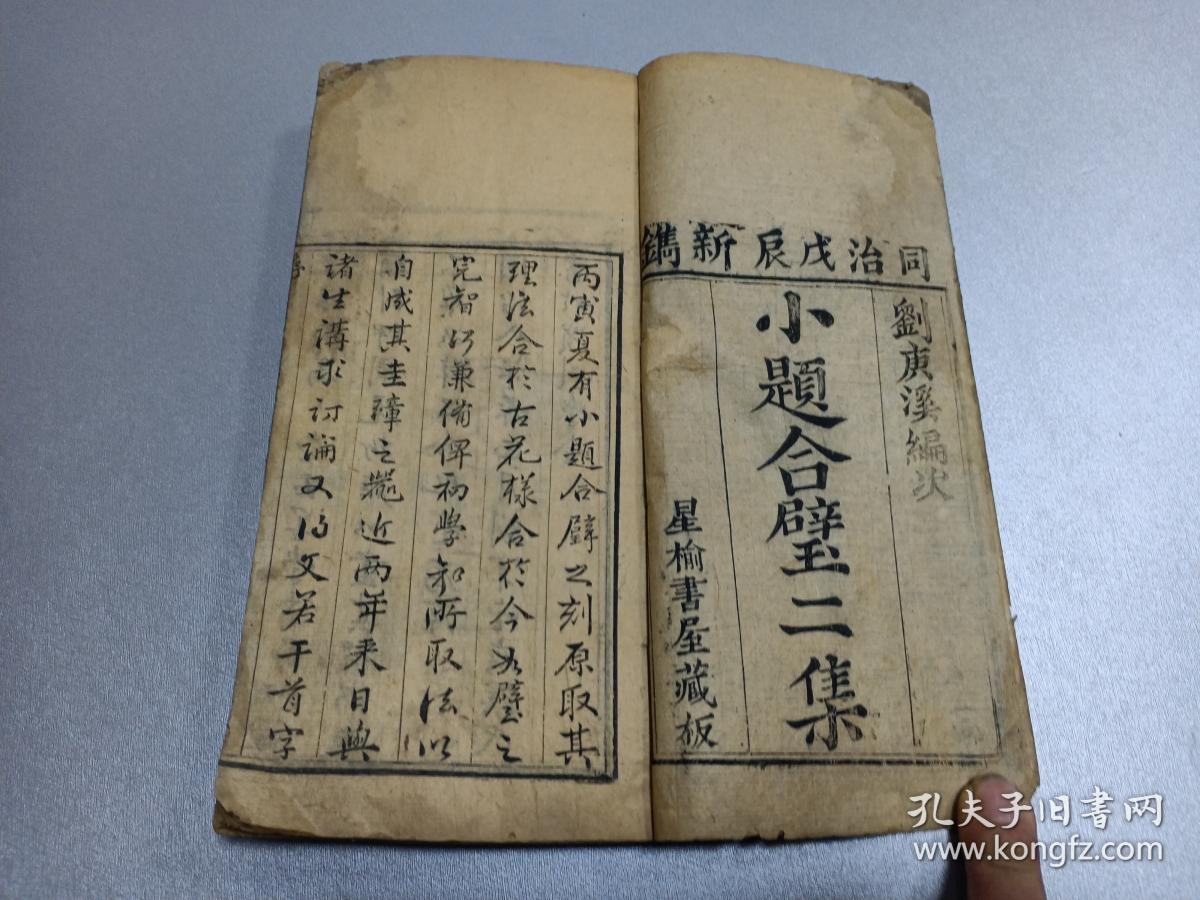 同治戊辰新鐫
劉庚溪編次
小題合璧二集
星榆書屋藏板
丙寅夏有小題合璧之刻原取其
理法合於古花樣合於今如璧之
完智巧兼備俾初學知所取法以
自成其圭璋之器近兩年來日與
諸生講求討論又得文若干首字
孔夫子旧书网
www.kongfz.com